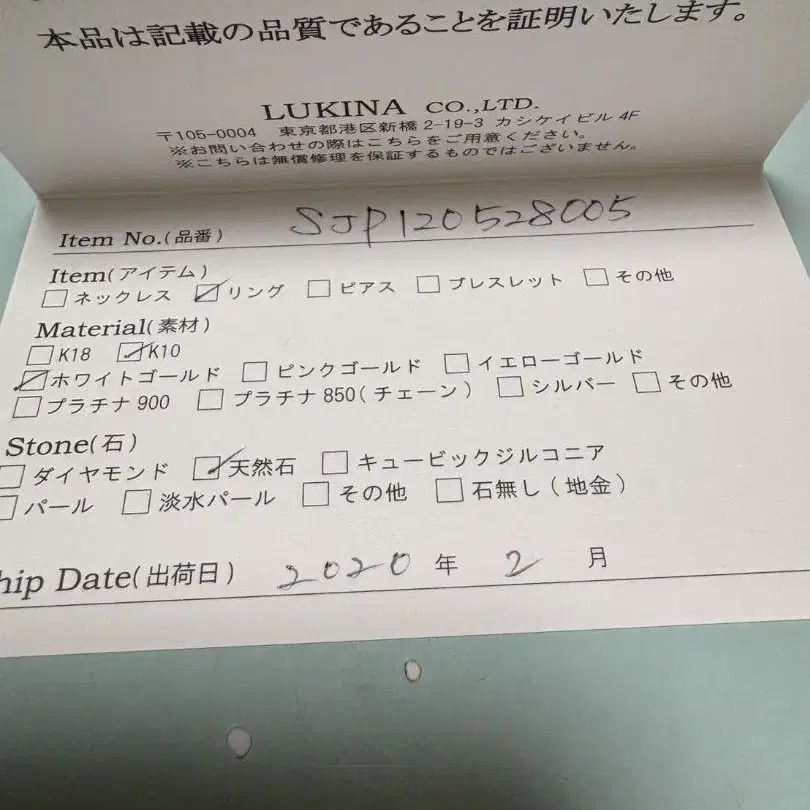 本品は記載の品質であることを証明いたします。
LUKINA CO.,LTD.
〒105-0004 東京都港区新橋 2-19-3 カシケイビル 4F
※お問い合わせの際はこちらをご用意ください。
※こちらは無償修理を保証するものではございません。
Item No.(品番) SJP120528005
Item(アイテム)
☐ ネックレス ☑ リング ☐ ピアス ☐ ブレスレット ☐ その他
Material(素材)
☐ K18 ☑ K10
☑ ホワイトゴールド ☐ ピンクゴールド ☐ イエローゴールド
☐ プラチナ 900 ☐ プラチナ 850(チェーン) ☐ シルバー ☐ その他
Stone(石)
☐ ダイヤモンド ☑ 天然石 ☐ キュービックジルコニア
☐ パール ☐ 淡水パール ☐ その他 ☐ 石無し(地金)
hip Date(出荷日) 2020 年 2 月